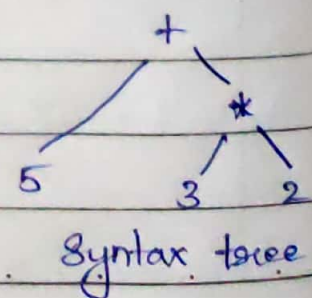 +
*
5 3 2
Syntax tree